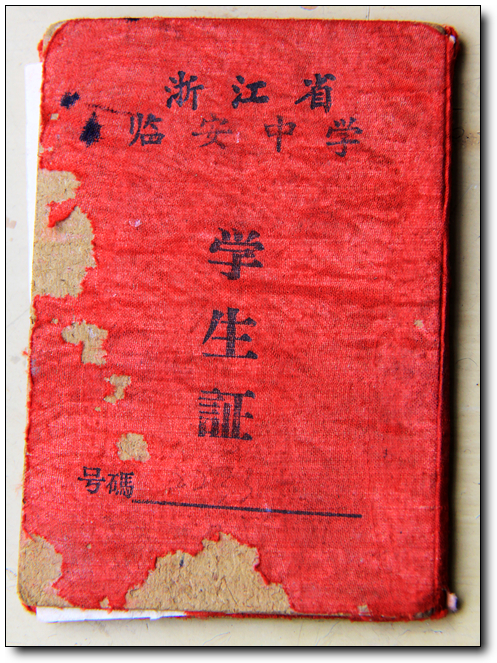 浙江省
临安中学
学生証
号碼